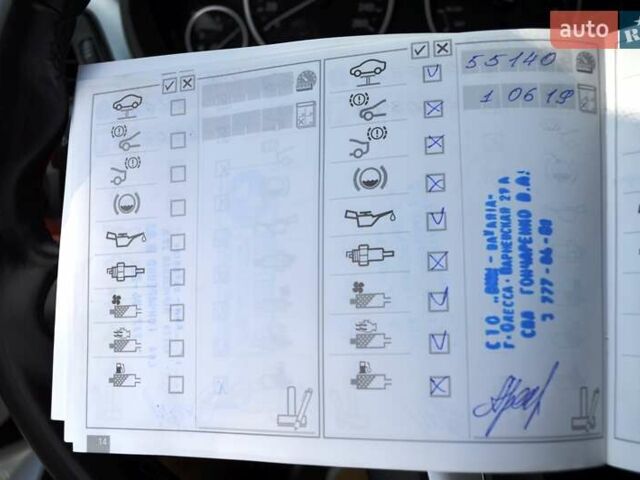 auto
R
55140
1 06 19
СТО „BMW - BAVARIA"
г. Одесса. Варненская 27 А
СПД ГОНЧАРЕНКО В.А.
т 777-86-80
14